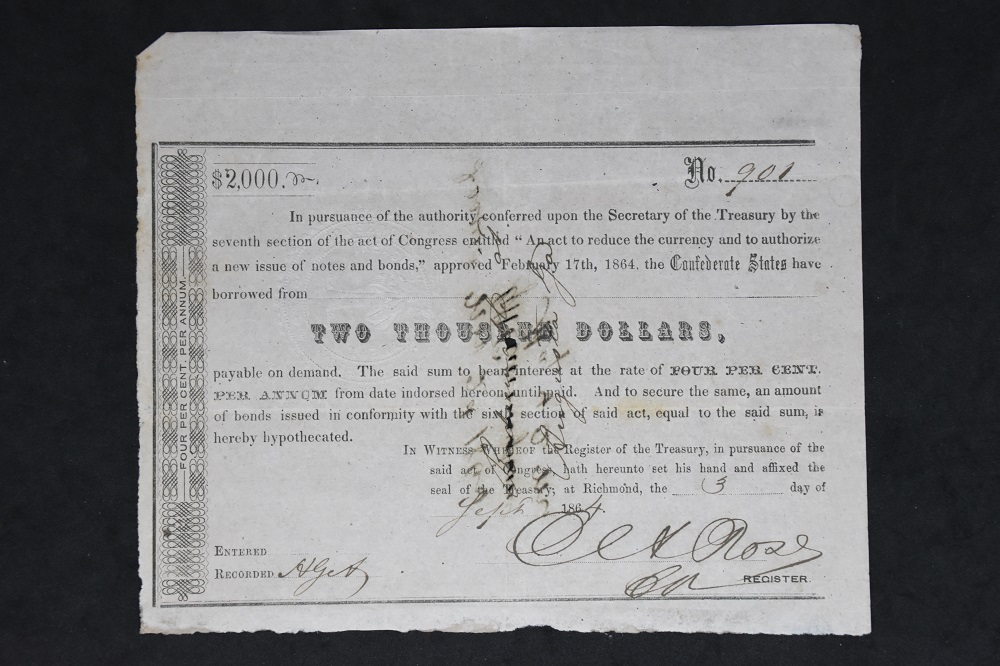 $2,000.
No. 901
In pursuance of the authority conferred upon the Secretary of the Treasury by the
seventh section of the act of Congress entitled “ An act to reduce the currency and to authorize
a new issue of notes and bonds,” approved February 17th, 1864. the Confederate States have
borrowed from
TWO THOUSAND DOLLARS,
payable on demand. The said sum to bear interest at the rate of FOUR PER CENT.
PER ANNUM from date indorsed hereon until paid. And to secure the same, an amount
of bonds issued in conformity with the sixth section of said act, equal to the said sum, is
hereby hypothecated.
In Witness Whereof the Register of the Treasury, in pursuance of the
said act of Congress, hath hereunto set his hand and affixed the
seal of the Treasury; at Richmond, the 3 day of
Sept 1864.
C A Rose
Entered
Recorded
REGISTER.
FOUR PER CENT. PER ANNUM.